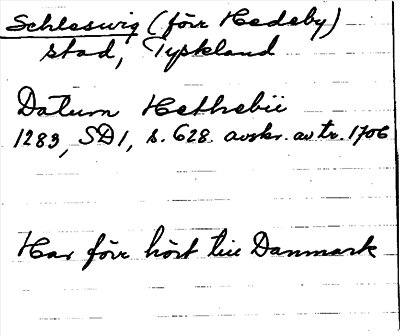 Schleswig (förr Hedeby)
stad, Tyskland
Datum Hethebü
1283, SD1, s. 628. avskr. av tr. 1706
Har förr hört till Danmark